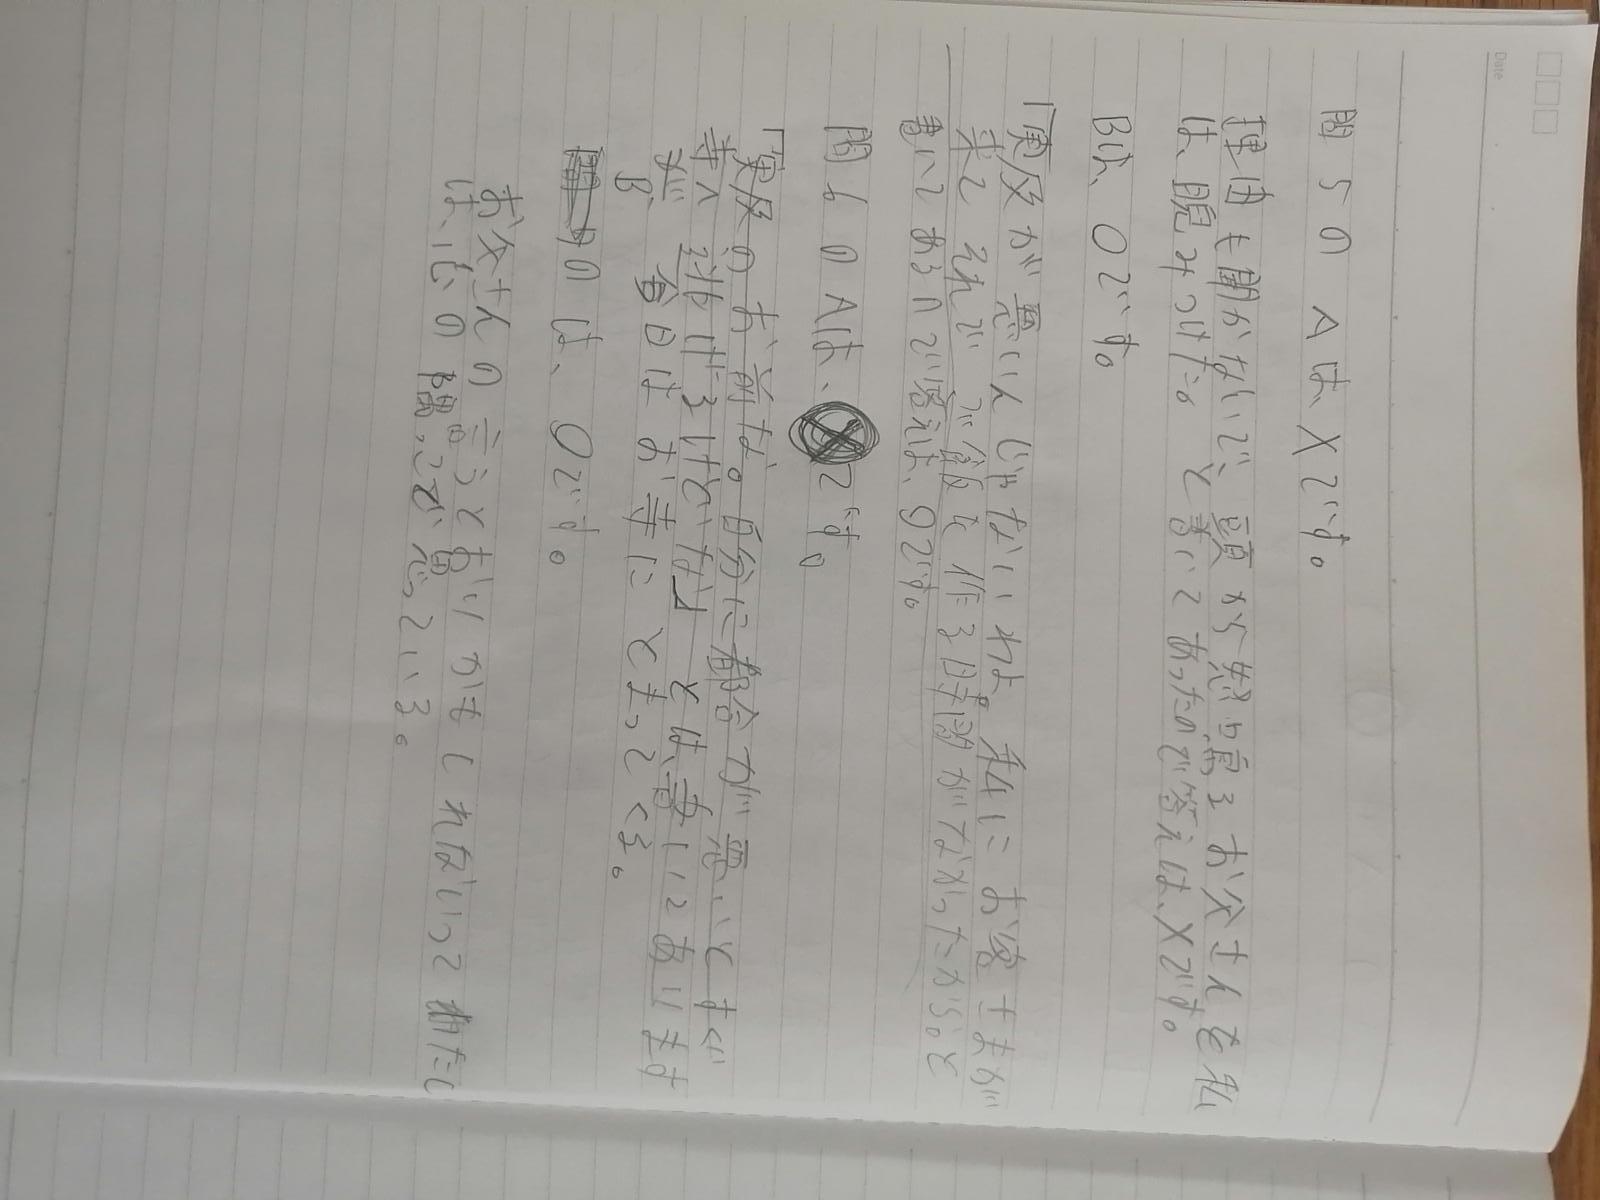 Date
問5の Aは、Xです。
理由も聞かないで、頭から怒鳴るお父さんを私
は、睨みつけた。と書いてあったので答えは、Xです。
Bは、○です。
「実反が悪いんじゃないわよ。私にお客さまが
来て それで、ご飯を作る時間がなかったから。と
書いてあるので答えは、○です。
問6の Aは、です。
「実反のお前は。自分に都合が悪いとすぐ
寺へ逃げるけどな」とは、書いてあります
が、今日はお寺にとまってくる。
Bのは、○です。
お父さんの言うとおりかもしれないってわたし
は、心の隅っこで思っている。